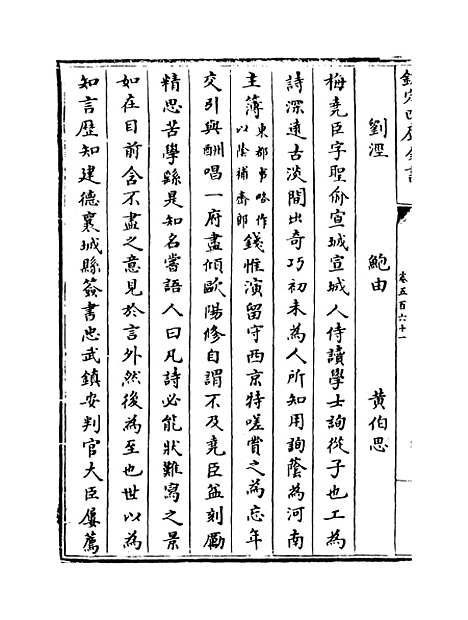 欽定四庫全書
卷五百六十一
劉涇　鮑由　黃伯思
梅堯臣字聖俞宣城宣城人侍讀學士詢從子也工為
詩深遠古淡間出奇巧初未為人所知用詢蔭為河南
主簿東都事略作以蔭補齋郎錢惟演留守西京特嗟賞之為忘年
交引與酬唱一府盡傾歐陽修自謂不及堯臣益刻勵
精思苦學繇是知名嘗語人曰凡詩必能狀難寫之景
如在目前含不盡之意見於言外然後為至也世以為
知言歴知建德襄城縣簽書忠武鎮安判官大臣屢薦